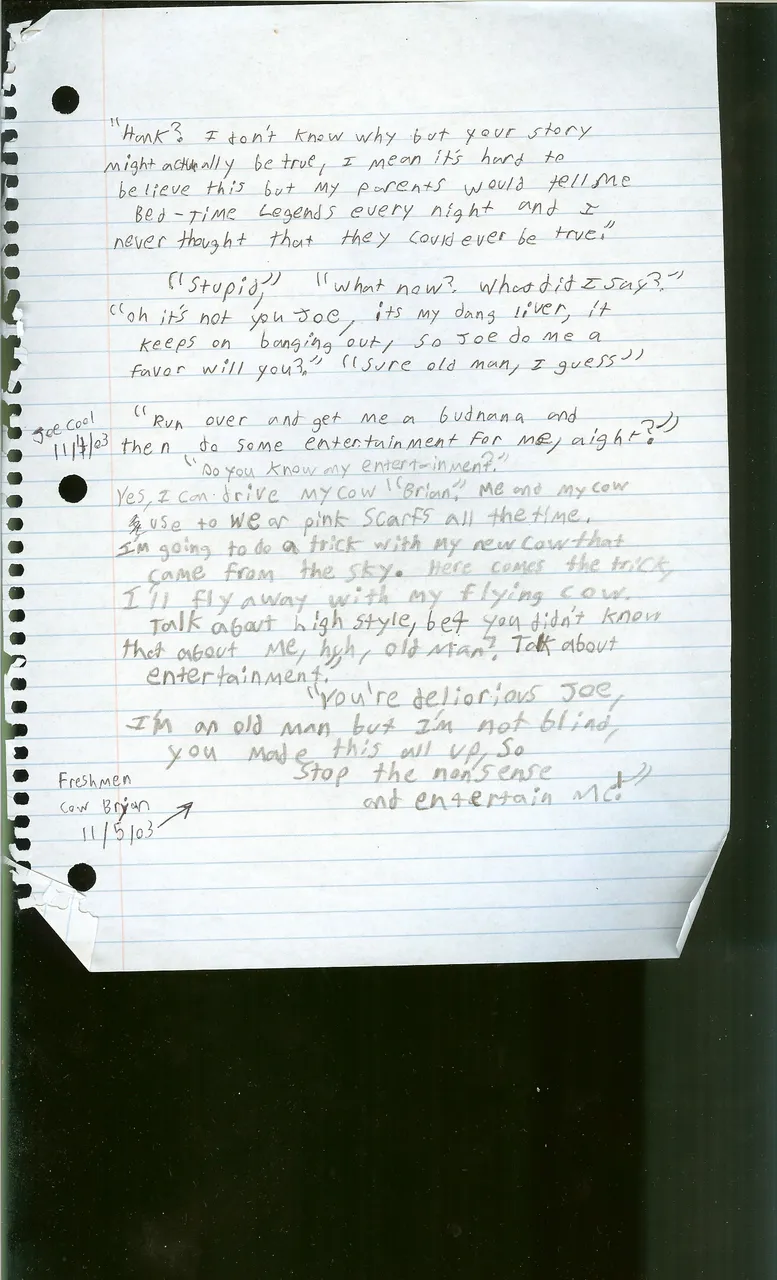 "Hank? I don't know why but your story
might actually be true, I mean it's hard to
believe this but my parents would tell me
Bed-Time Legends every night and I
never thought that they could ever be true."
"Stupid," "What now? What did I say?"
"oh it's not you Joe, its my dang liver, it
keeps on banging out, so Joe do me a
favor will you?." "Sure old man, I guess"
"Run over and get me a budnana and
Joe Cool
11/4/03
then do some entertainment for me, aight?"
"Do you know my entertainment?"
Yes, I can drive my cow "Brian." Me and my cow
use to wear pink scarfs all the time.
I'm going to do a trick with my new cow that
came from the sky. Here comes the trick,
I'll fly away with my flying cow.
Talk about high style, bet you didn't know
that about me, huh, old man? Talk about
entertainment."
"You're deliorious Joe,
I'm an old man but I'm not blind,
you made this all up, so
stop the nonsense
and entertain Me!"
Freshmen
Cow Bryan
11/5/03